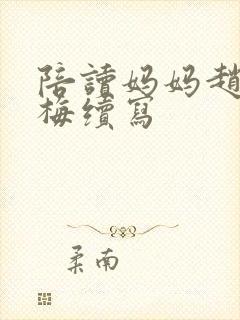 陪讀媽媽趙
梅續寫
柔南